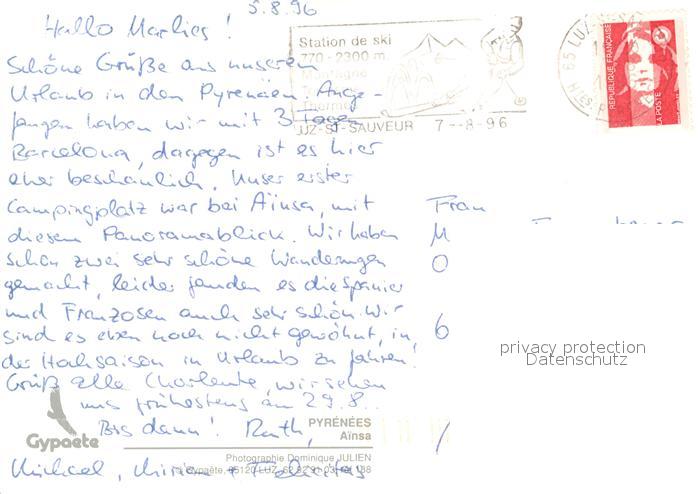 5.8.96
Hallo Marlies!
Schöne Grüße aus unserem
Urlaub in den Pyrenäen. Ange-
fangen haben wir mit 3 Tagen
Barcelona, dagegen ist es hier
eher beschaulich. Unser erster
Campingplatz war bei Aïnsa, mit
diesem Panoramablick. Wir haben
schon zwei sehr schöne Wanderungen
gemacht, leider fanden es die Spanier
und Franzosen auch sehr schön. Wir
sind es eben noch nicht gewöhnt, in
der Hochsaison in Urlaub zu fahren!
Grüß alle Chorleute, wir sehen
uns frühestens am 29.8..
Bis dann! Ruth,
Michael, Miriam + Felicitas
Station de ski
770-2300 m.
Montagne
Therm
LUZ-ST-SAUVEUR 7--8-96
65 LUZ
RÉPUBLIQUE FRANÇAISE
LA POSTE
Frau
M
O
6
privacy protection
Datenschutz
Gypaète
PYRÉNÉES
Aïnsa
Photographie Dominique JULIEN
© Gypaète, 65120 LUZ, 62 92 91 03